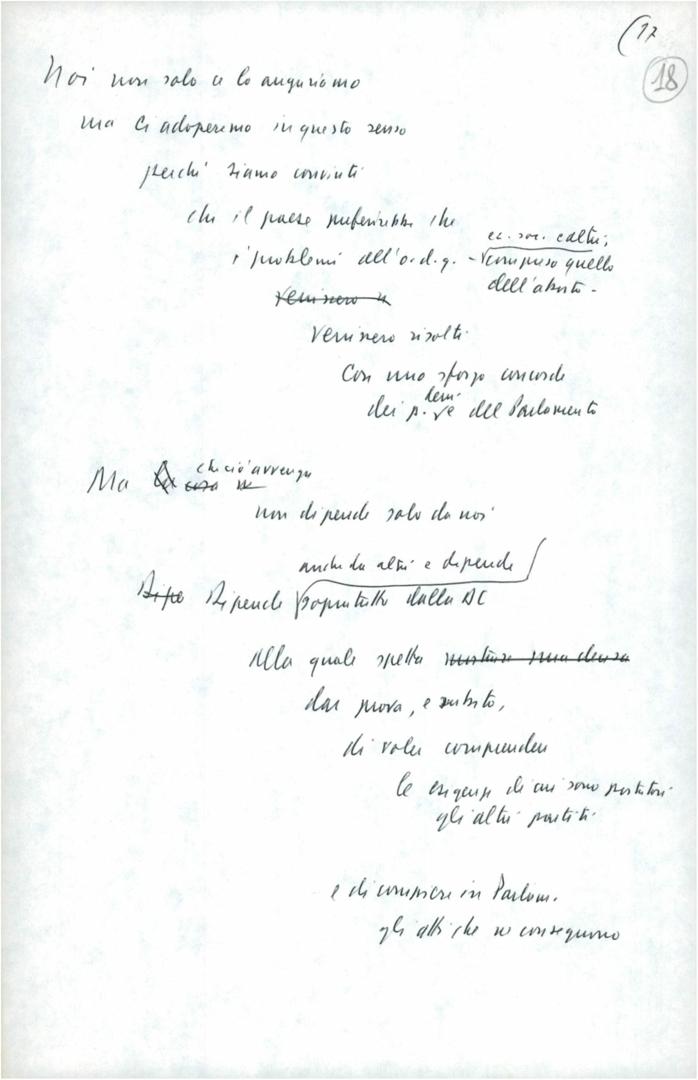 (17
18
Noi non solo ce lo auguriamo
ma ci adoperemo in questo senso
perchi siamo convinti
che il paese preferirebbe che
ec. soc. e altri,
i problemi all'o.d.g. - compreso quello
dell'aborto -
venissero
venissero risolti
con uno sforzo concorde
dem.
dei p. del Parlamento
che ciò avvenga
Ma la cosa
non dipende solo da noi
anche da altri e dipende
Dipe Dipende sopratutto dalla DC
alla quale spetta
dar prova, e subito,
di voler comprendere
le esigenze di cui sono portatori
gli altri partiti
e di compiere in Parlam.
gli atti che ne conseguono